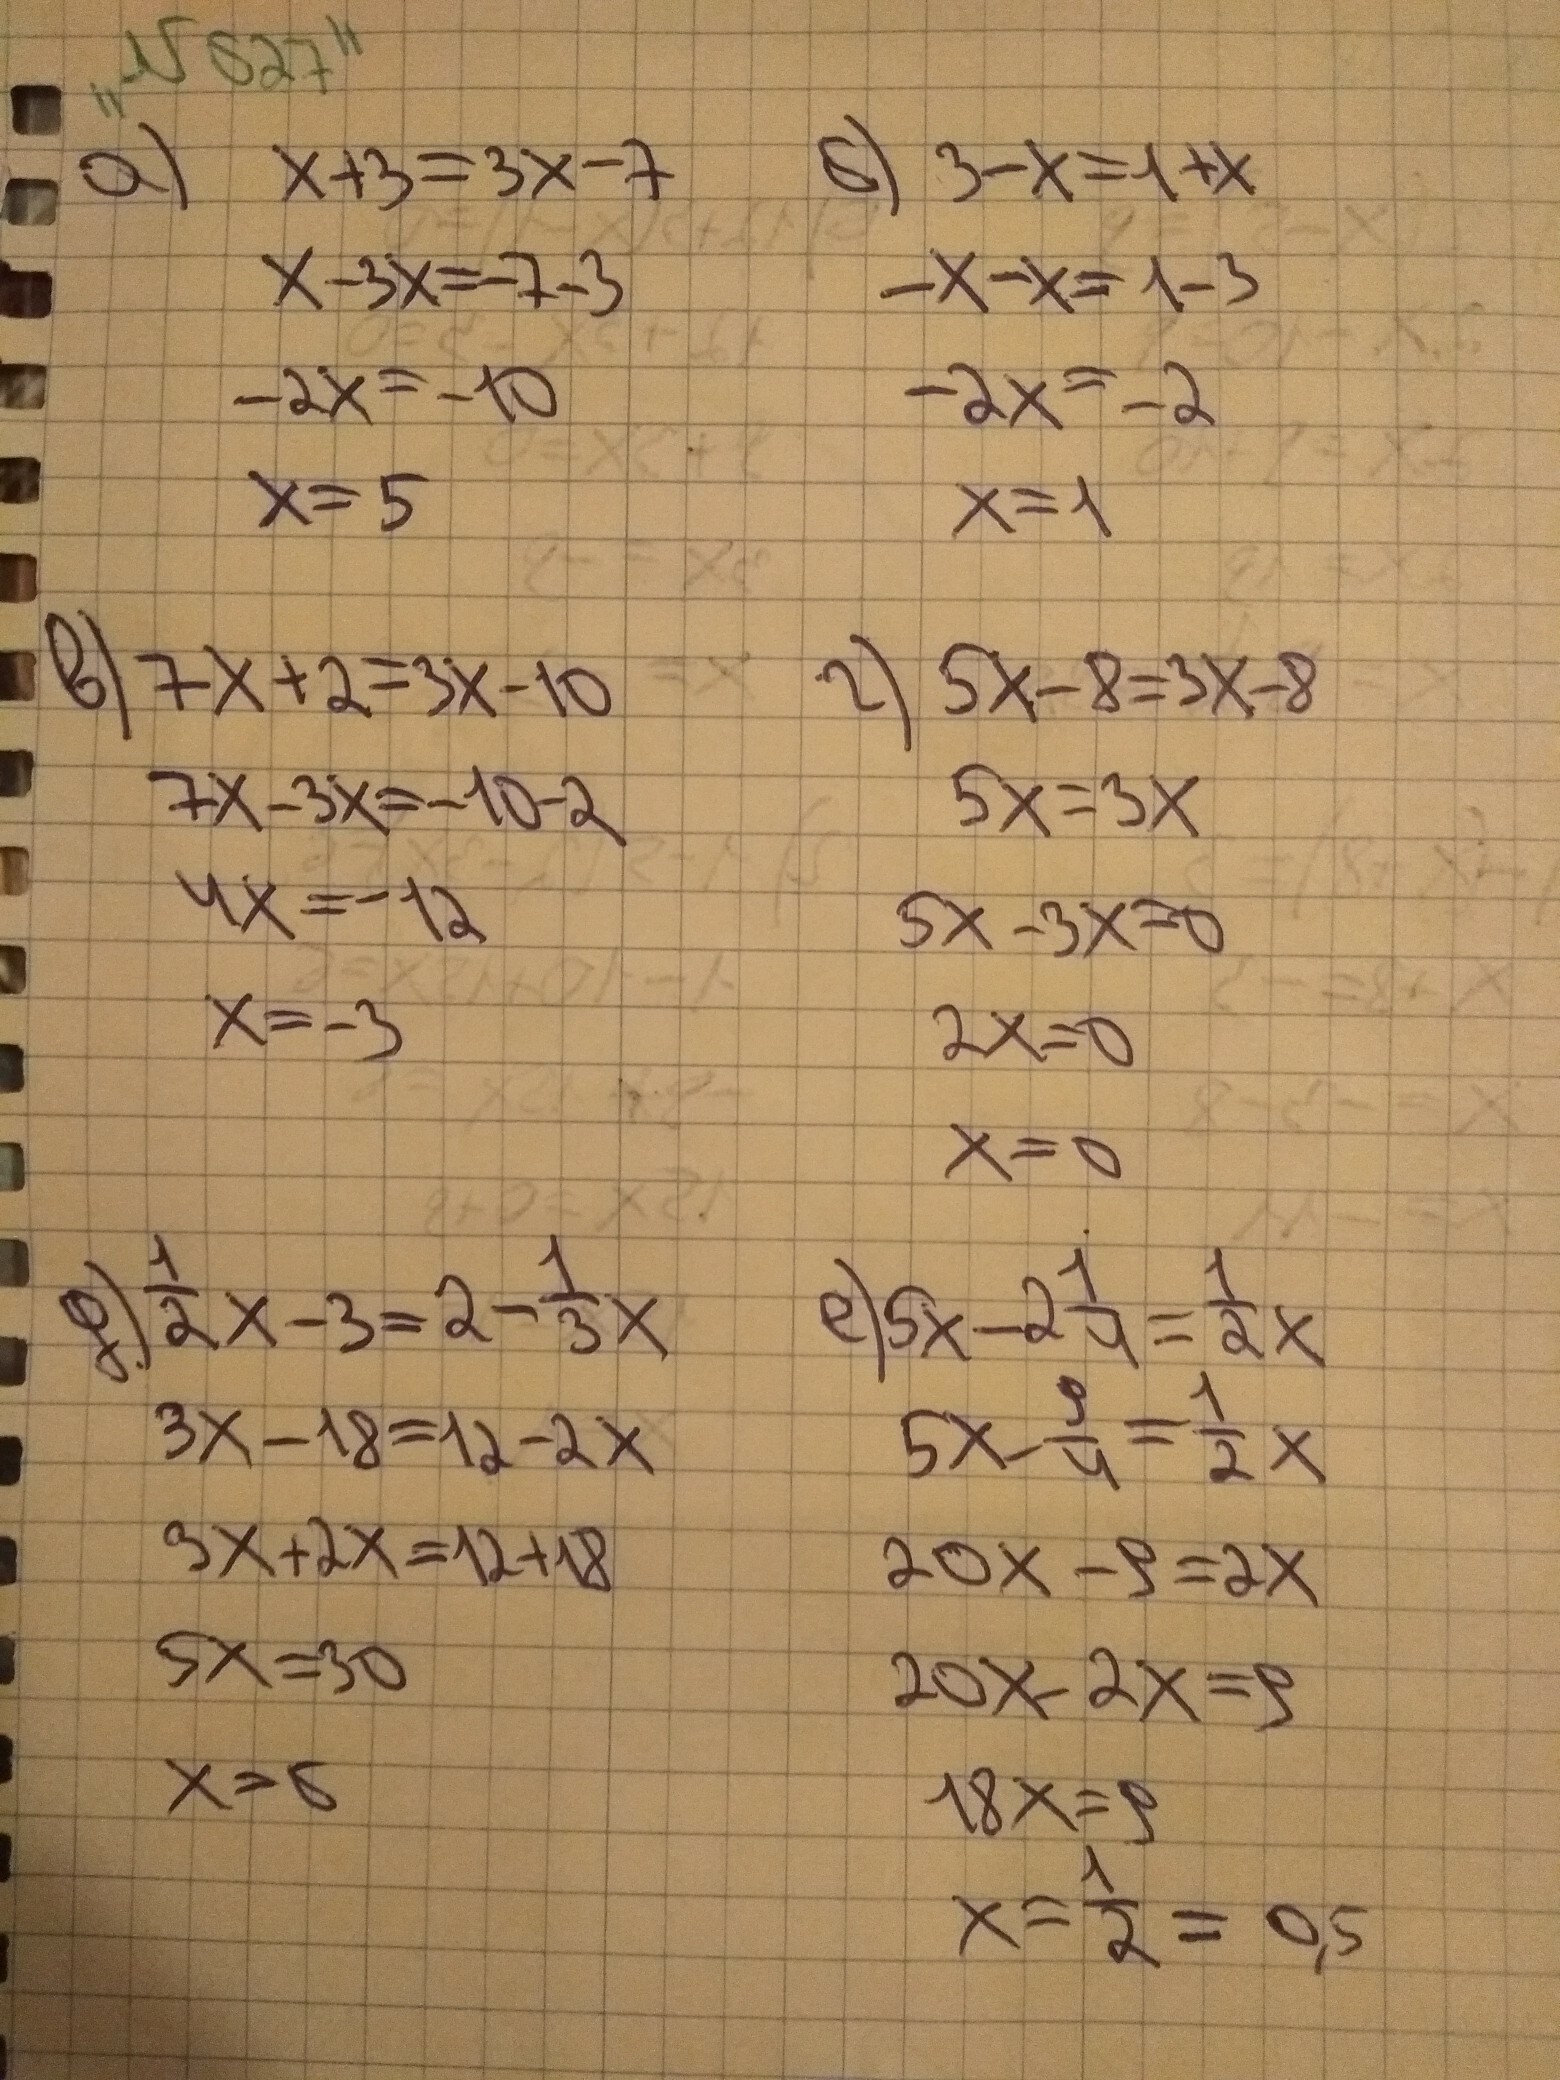 „N 627"
а) x+3=3x-7
x-3x=-7-3
-2x=-10
x=5
б) 3-x=1+x
-x-x=1-3
-2x=-2
x=1
в) 7x+2=3x-10
7x-3x=-10-2
4x=-12
x=-3
г) 5x-8=3x-8
5x=3x
5x-3x=0
2x=0
x=0
д) 1/2x-3=2-1/3x
3x-18=12-2x
3x+2x=12+18
5x=30
x=6
е) 5x-2 1/4=1/2x
5x-9/4=1/2x
20x-9=2x
20x-2x=9
18x=9
x=1/2=0,5